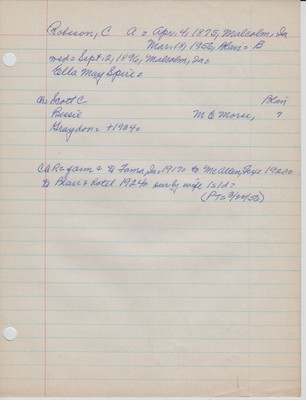 Robison, C A = Apr. 4, 1875, Malcolm, Ia
Mar. 18, 1956, Plain = B
med = Sept. 2, 1896, Malcolm, Ia =
Ella May Spire =
ch Scott C Plain
Bessie M E Morse, ?
Graydon = +1940 =
CAR = farm = to Tama, Ia = 1917 = to McAllen, Tex = 1920 =
to Phar = hotel 1924 = surv by wife 1s 1d =
(PT = 3/22/56)